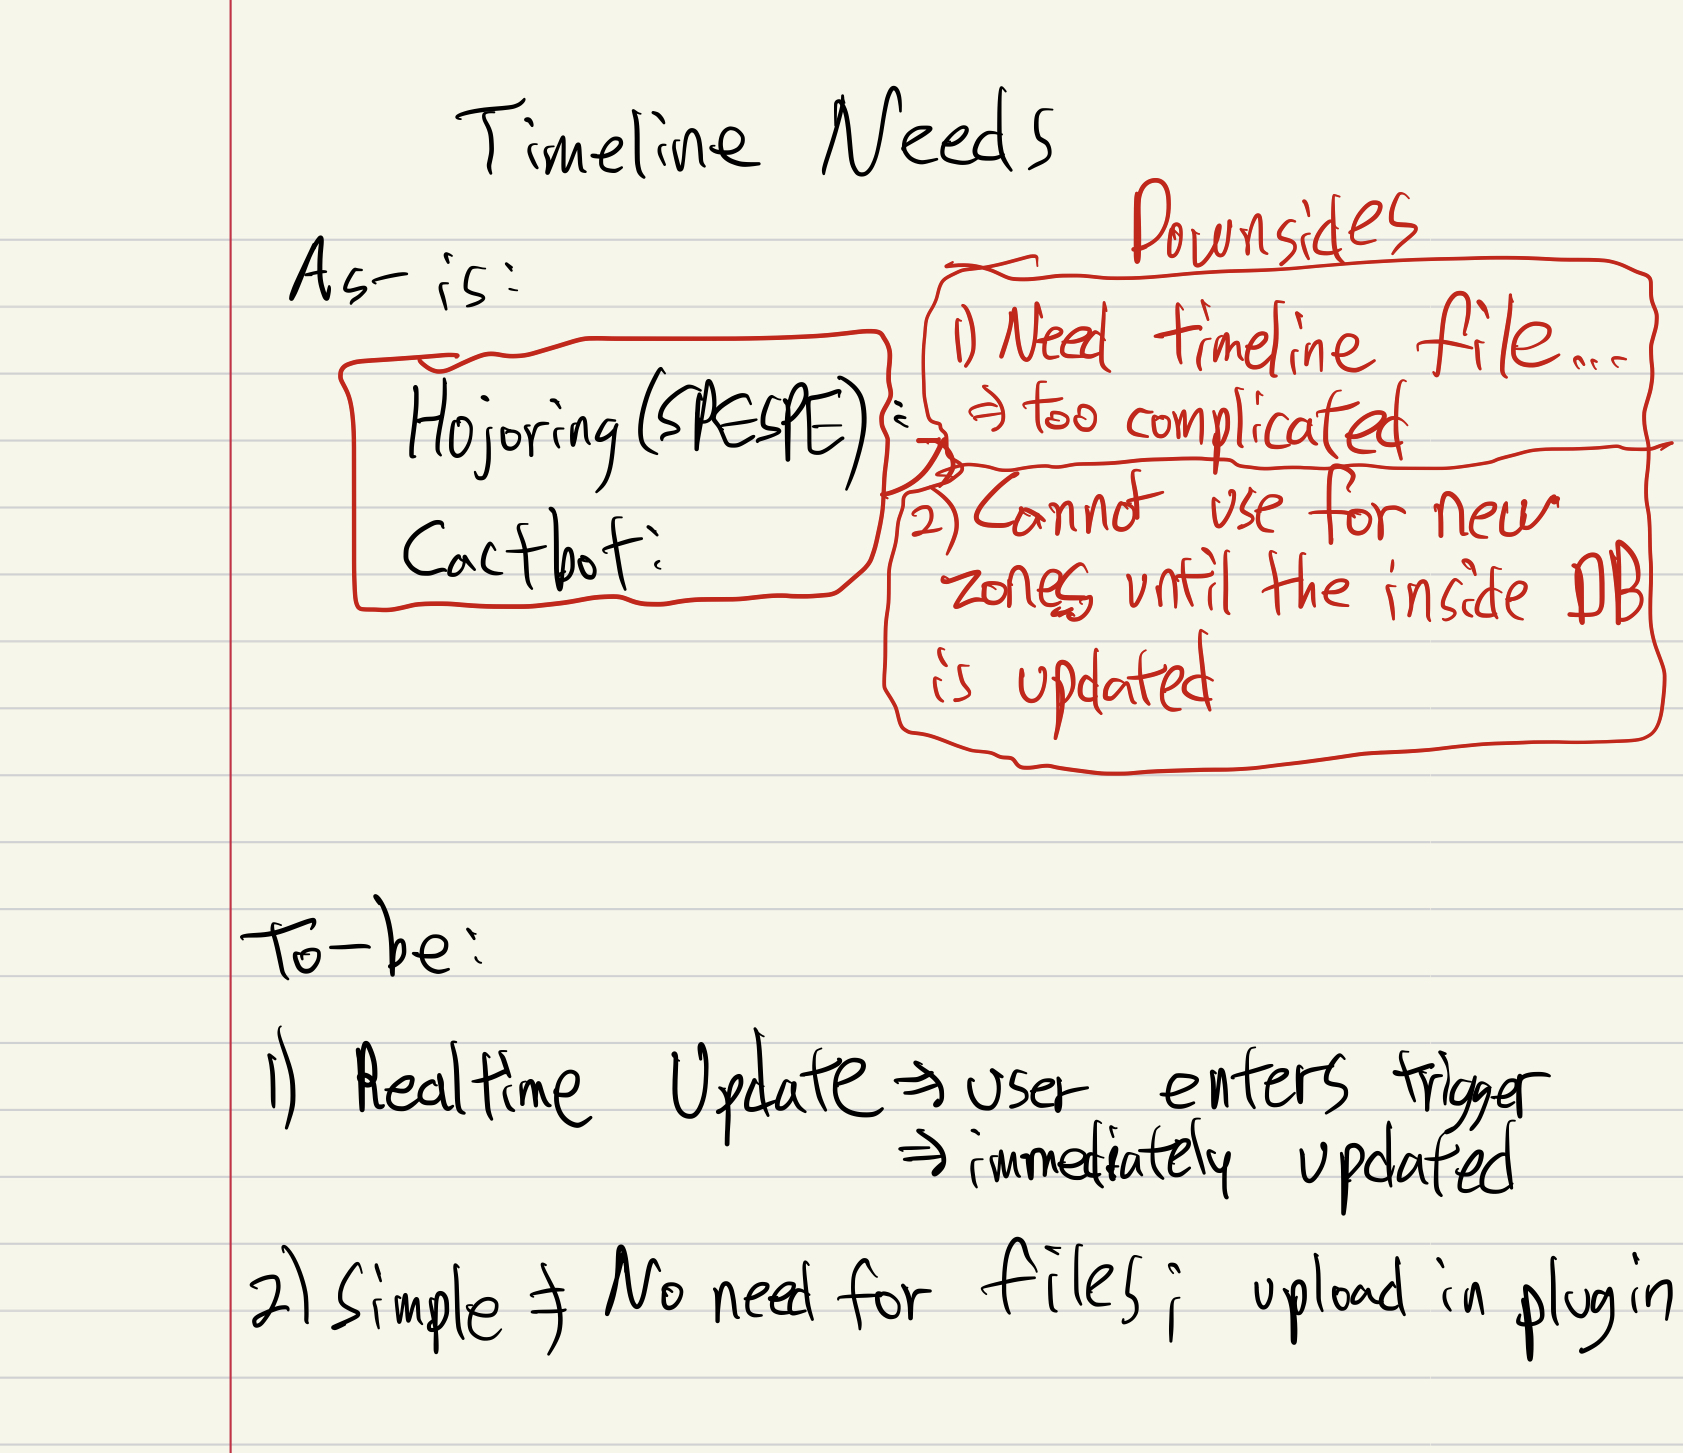 Timeline Needs
As-is:
Hojoring (SPESPE):
Cactbot:
Downsides
1) Need timeline file...
⇒ too complicated
2) Cannot use for new
zones until the inside DB
is updated
To-be:
1) Realtime Update ⇒ user enters trigger
⇒ immediately updated
2) Simple ⇒ No need for files; upload in plugin